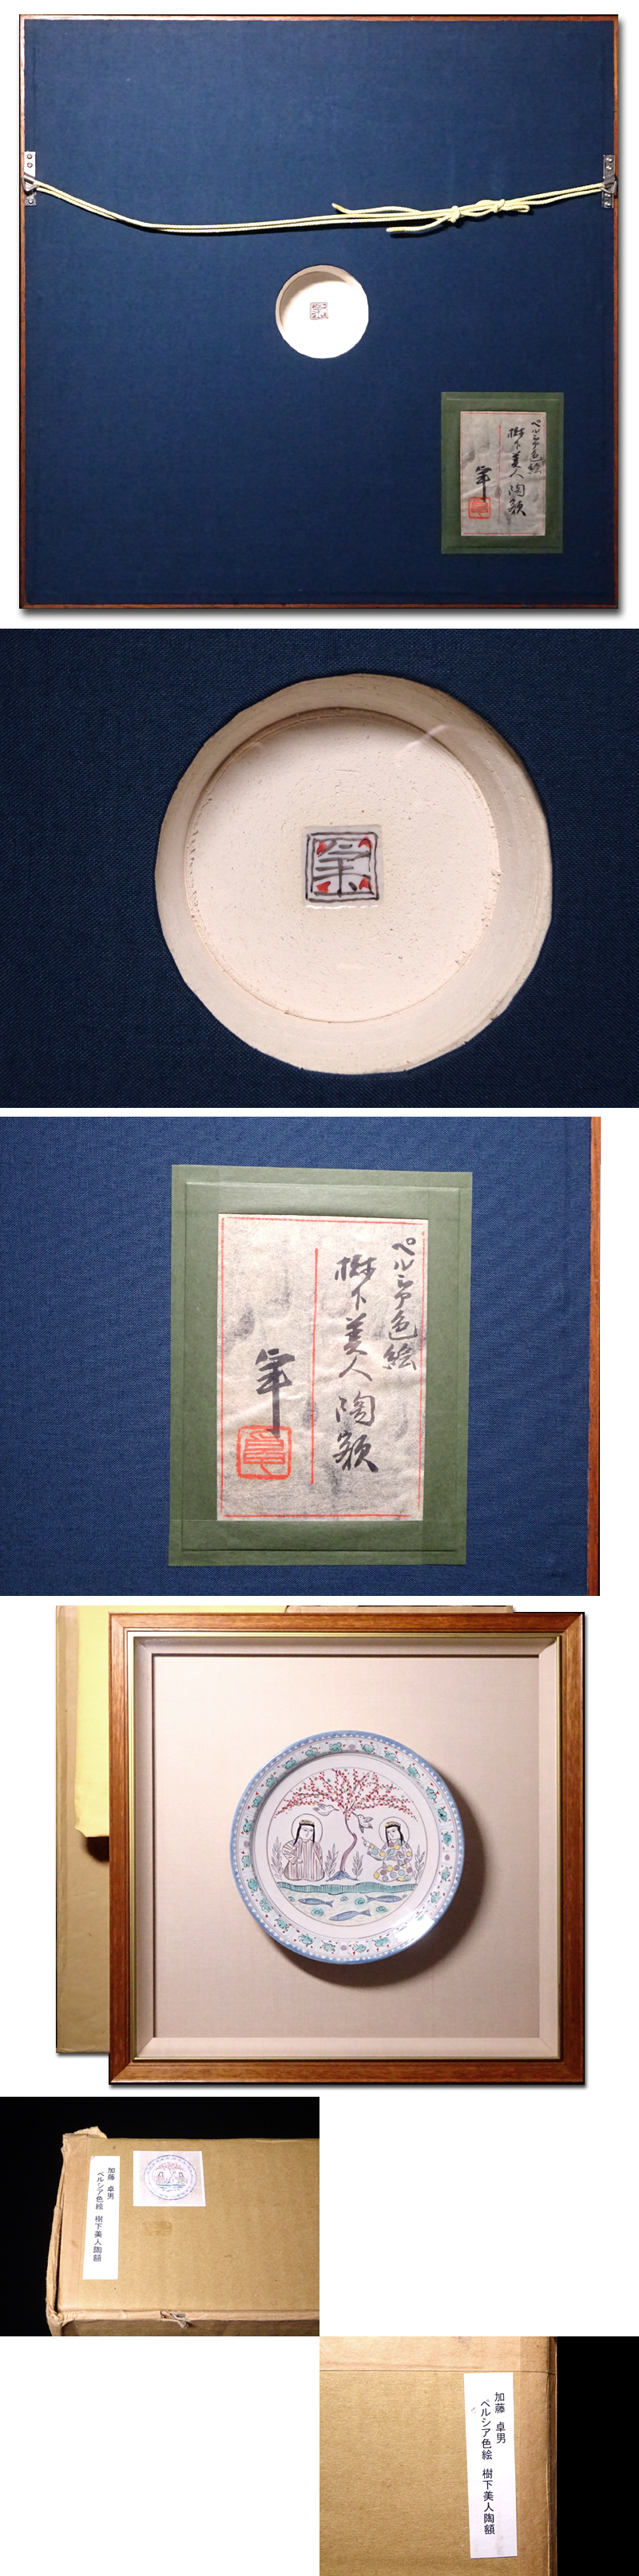 ペルシア色絵
樹下美人陶額
卓
ペルシア色絵
樹下美人陶額
卓
加藤 卓男
ペルシア色絵 樹下美人陶額
加藤 卓男
ペルシア色絵 樹下美人陶額